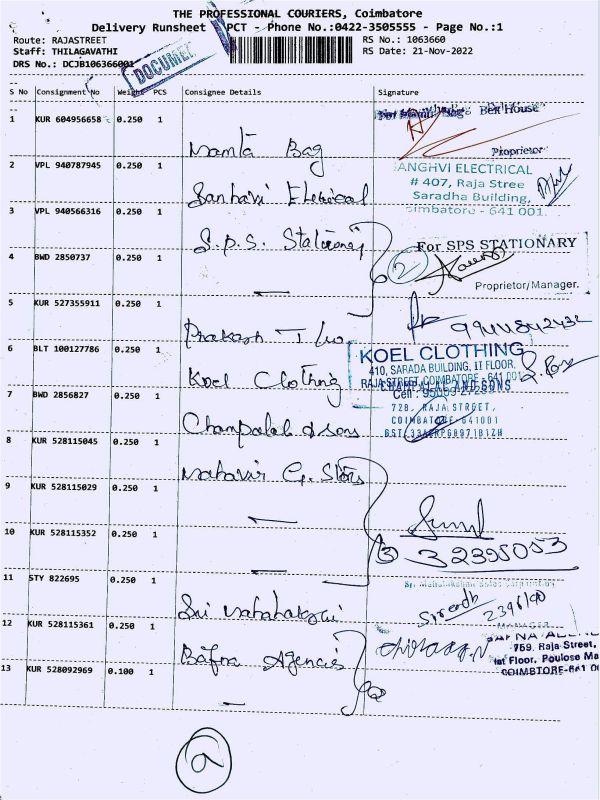 THE PROFESSIONAL COURIERS, Coimbatore
Delivery Runsheet PCT - Phone No.:0422-3505555 - Page No.:1
Route: RAJASTREET RS No.: 1063660
Staff: THILAGAVATHI RS Date: 21-Nov-2022
DRS No.: DCJB106366001
DOCUMEN
S No Consignment No Weight PCS Consignee Details Signature
1 KUR 604956658 0.250 1 Mamta Bag
Belt House
Proprietor
2 VPL 940787945 0.250 1 Sanhavi Electrical
ANGHVI ELECTRICAL
# 407, Raja Stree
Saradha Building,
oimbatore - 641 001.
3 VPL 940566316 0.250 1 S.p.s. Stationary
For SPS STATIONARY
4 BWD 2850737 0.250 1 —
2
Proprietor/Manager.
5 KUR 527355911 0.250 1 Prakash
9944842432
6 BLT 100127786 0.250 1 Koel Clothing
KOEL CLOTHING
410, SARADA BUILDING, II FLOOR,
RAJA STREET, COIMBATORE - 641 001
7 BWD 2856827 0.250 1 Champalal & sons
CHAMPALAL AND SONS
Cell :
728, RAJA STREET,
COIMBATORE-641001
8 KUR 528115045 0.250 1 Mahavir G. Stores
9 KUR 528115029 0.250 1 —
10 KUR 528115352 0.250 1 —
3 32395053
11 STY 822695 0.250 1 Sri Mahalakshmi
MANAGER
12 KUR 528115361 0.250 1 Bafna Agencies
759, Raja Street,
Ist Floor, Poulose Ma
COIMBTORE-641 00
13 KUR 528092969 0.100 1 —
a